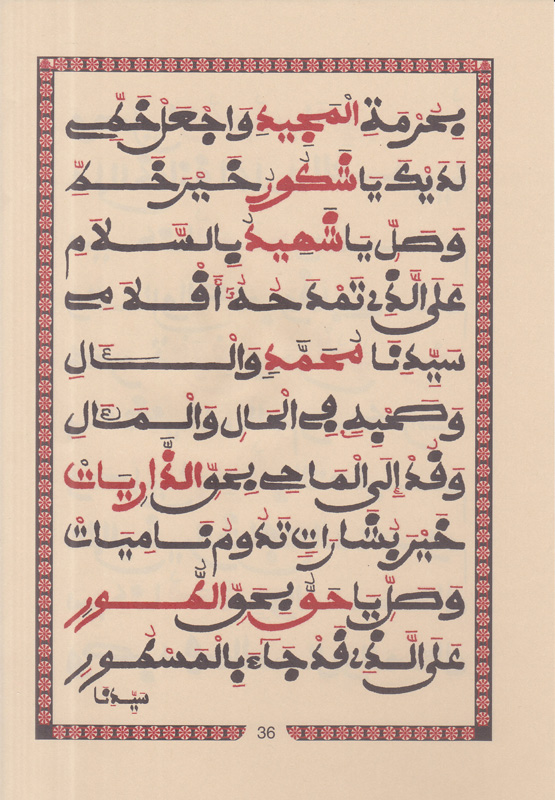 بِحُرْمَةِ الْمَجِيدِ وَاجْعَلْ خَطِّي
لَدَيْكَ يَا شَكُورُ خَيْرَ خَطِّ
وَصَلِّ يَا شَهِيدُ بِالسَّلَامِ
عَلَى الَّذِي تَمْدَحُهُ أَقْلَامِي
سَيِّدِنَا مُحَمَّدٍ وَالْآلِ
وَصَحْبِهِ فِي الْحَالِ وَالْمَآلِ
وَقُدْ إِلَى الْمَاحِي بِحَقِّ الذَّارِيَاتْ
خَيْرَ بِشَارَاتٍ تَدُومُ نَامِيَاتْ
وَصَلِّ يَا حَقُّ بِحَقِّ الطُّورِ
عَلَى الَّذِي قَدْ جَاءَ بِالْمَسْطُورِ
سَيِّدِنَا
36